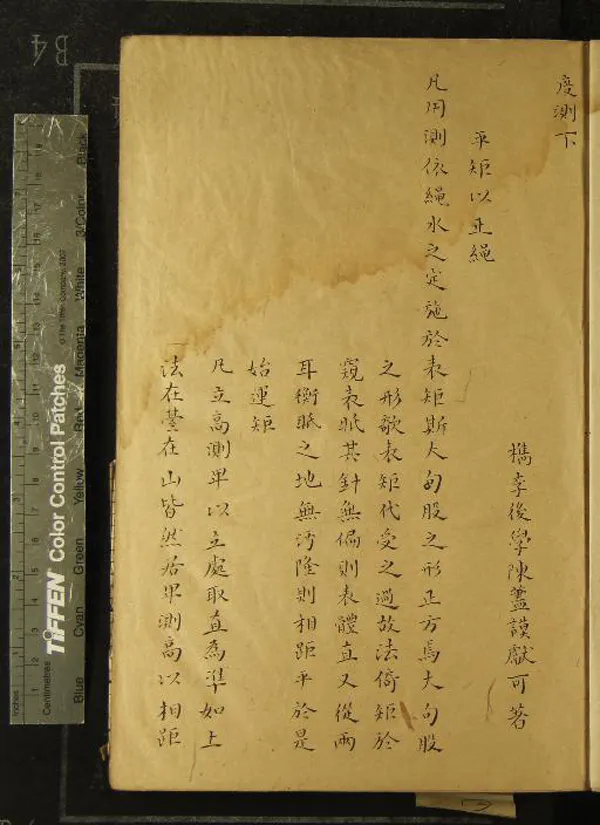 度測下
檇李後學陳藎謨獻可著
平矩以正繩
凡用測依繩水之定施於表矩斯大句股之形正方焉大句股
之形欹表矩代受之過故法倚矩於
窺表眂其針無偏則表體直又從兩
耳衡眂之地無汚隆則相距平於是
始運矩
凡立高測畀以立處取直為準如上
法在臺在山皆然居畀測高以相距
B4
Inches
Centimetres
TIFFEN Color Control Patches
© The Tiffen Company, 2007
Blue
Cyan
Green
Yellow
Red
Magenta
White
3/Color
Black